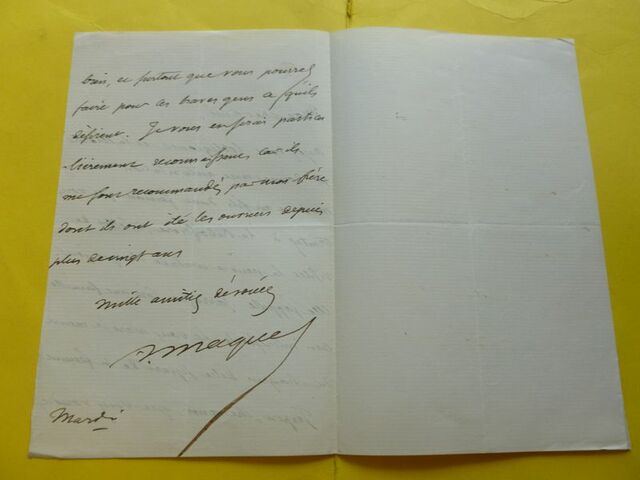 bais, et surtout que vous pourrez
faire pour ces braves gens ce qu'ils
désirent. Je vous en serai particu
-lièrement reconnaissant car ils
me sont recommandés par mon frère
dont ils ont été les ouvriers depuis
plus de vingt ans
mille amitiés dévouées
A. Maquet
Mardi